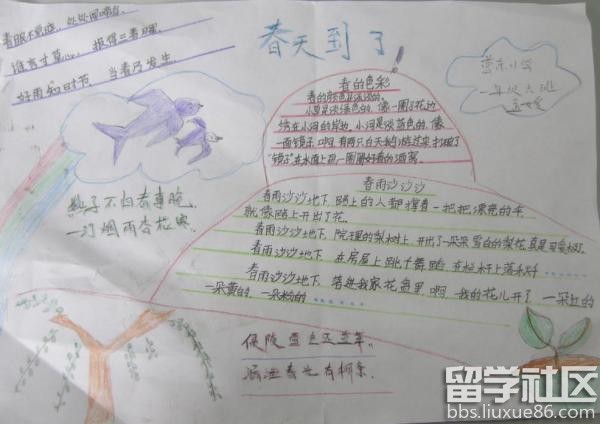 春眠不觉晓，处处闻啼鸟。
谁言寸草心，报得三春晖。
好雨知时节，当春乃发生。
春天到了
一年级六班
春的色彩
春的颜色是淡淡的，
小草是淡绿色的，像一圈花边
绣在小河的岸边，小河是淡蓝色的，像
一面镜子，啊，有两只白天鹅游过来，打破了
"镜子"在水面上画一圈圈好看的酒窝。
春雨沙沙沙
春雨沙沙地下，路上的人都撑着一把把漂亮的伞
就像路上开出了花。
春雨沙沙地下，院里的梨树上，开出了一朵朵雪白的梨花，真是可爱极了。
春雨沙沙地下，在房屋上跳个舞蹈，在栏杆上落
春雨沙沙地下，落进我家花盆里，啊，我的花儿开了，一朵红的
一朵黄的，一朵粉的……
燕子不归春事晚，
一汀烟雨杏花寒。
留学社区
bbs.liuxue86.com